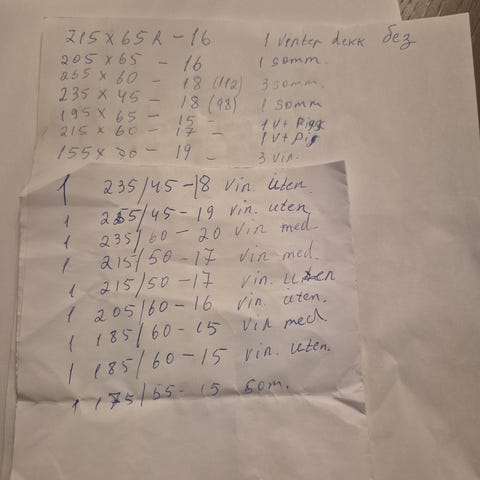 215 x 65 R - 16 1 vinter dekk без
205 x 65 - 16 1 somm.
255 x 60 - 18 (112) 3 somm.
235 x 45 - 18 (98) 1 somm
195 x 65 - 15 - 1 v+ pigg
215 x 60 - 17 - 1 v+ pig
155 x 70 - 19 - 3 vin.
1 235/45-18 vin. uten
1 255/45-19 vin. uten
1 235/60-20 vin med.
1 215/50-17 vin med.
1 215/50-17 vin. uten
1 205/60-16 vin. uten.
1 185/60-15 vin med.
1 185/60-15 vin. uten.
1 175/55-15 som.